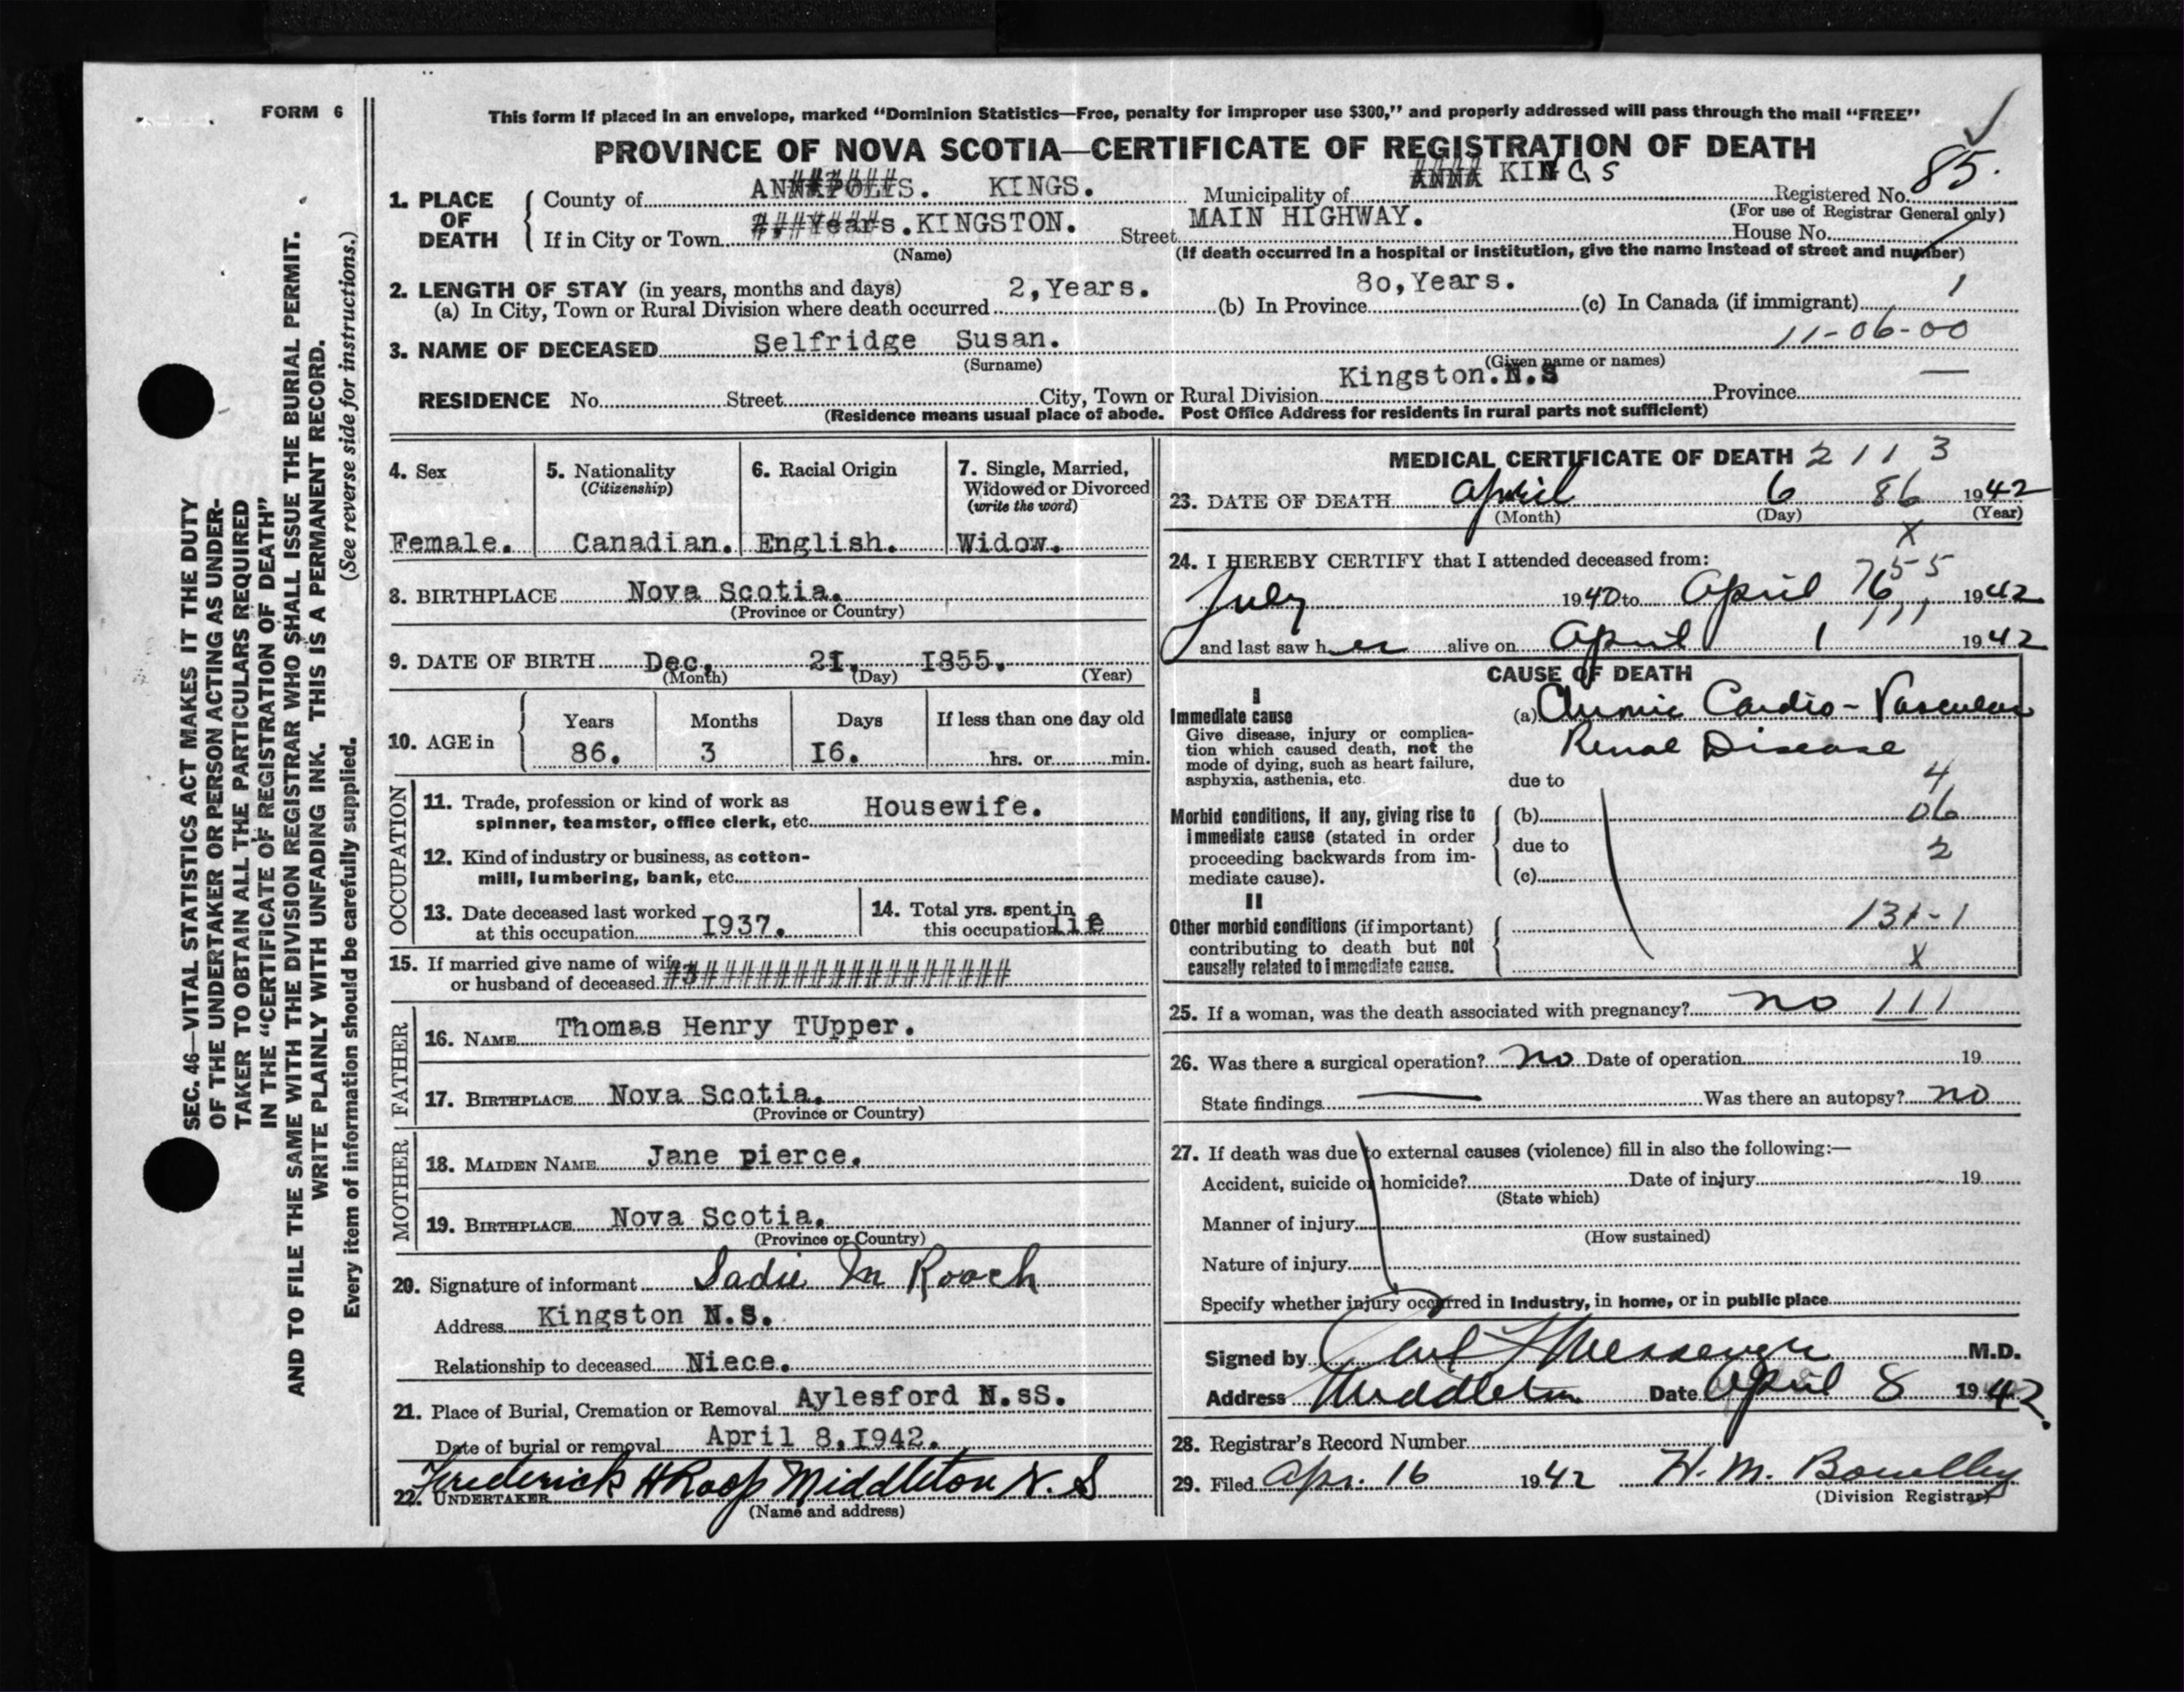 FORM 6
This form if placed in an envelope, marked “Dominion Statistics—Free, penalty for improper use $300,” and properly addressed will pass through the mail “FREE”
PROVINCE OF NOVA SCOTIA—CERTIFICATE OF REGISTRATION OF DEATH
1. PLACE OF DEATH
County of ANNAPOLIS. KINGS. Municipality of ANNA KINGS Registered No. 85.
(For use of Registrar General only)
If in City or Town Years. KINGSTON. Street MAIN HIGHWAY. House No.
(Name) (If death occurred in a hospital or institution, give the name instead of street and number)
2. LENGTH OF STAY (in years, months and days)
(a) In City, Town or Rural Division where death occurred 2,Years. (b) In Province 80,Years. (c) In Canada (if immigrant) 1
3. NAME OF DECEASED Selfridge Susan. 11-06-00
(Surname) (Given name or names)
RESIDENCE No. Street City, Town or Rural Division Kingston.N.S Province
(Residence means usual place of abode. Post Office Address for residents in rural parts not sufficient)
4. Sex
Female.
5. Nationality
(Citizenship)
Canadian.
6. Racial Origin
English.
7. Single, Married,
Widowed or Divorced
(write the word)
Widow.
8. BIRTHPLACE Nova Scotia.
(Province or Country)
9. DATE OF BIRTH Dec, 21, 1855.
(Month) (Day) (Year)
10. AGE in
Years Months Days If less than one day old
86. 3 I6. hrs. or min.
OCCUPATION
11. Trade, profession or kind of work as
spinner, teamster, office clerk, etc. Housewife.
12. Kind of industry or business, as cotton-
mill, lumbering, bank, etc.
13. Date deceased last worked
at this occupation I937.
14. Total yrs. spent in
this occupation life
15. If married give name of wife
or husband of deceased #3##################
FATHER
16. NAME Thomas Henry TUpper.
17. BIRTHPLACE Nova Scotia.
(Province or Country)
MOTHER
18. MAIDEN NAME Jane pierce.
19. BIRTHPLACE Nova Scotia.
(Province or Country)
20. Signature of informant Sadie M Roach
Address Kingston N.S.
Relationship to deceased Niece.
21. Place of Burial, Cremation or Removal Aylesford N.sS.
Date of burial or removal April 8,I942.
22. UNDERTAKER Frederick H Roop Middleton N.S
(Name and address)
MEDICAL CERTIFICATE OF DEATH 2 1 1 3
23. DATE OF DEATH April 6 86 1942
(Month) (Day) (Year)
X
24. I HEREBY CERTIFY that I attended deceased from:
July 1940 to April 6 1942
and last saw her alive on April 1 1942
CAUSE OF DEATH
I
Immediate cause
Give disease, injury or complica-
tion which caused death, not the
mode of dying, such as heart failure,
asphyxia, asthenia, etc.
(a) Chronic Cardio-Vascular
Renal Disease
due to
4
Morbid conditions, if any, giving rise to
immediate cause (stated in order
proceeding backwards from im-
mediate cause).
(b) 06
due to 2
(c)
II
Other morbid conditions (if important)
contributing to death but not
causally related to immediate cause.
131-1
X
25. If a woman, was the death associated with pregnancy? no 111
26. Was there a surgical operation? no Date of operation 19
State findings Was there an autopsy? no
27. If death was due to external causes (violence) fill in also the following:—
Accident, suicide or homicide? Date of injury 19
(State which)
Manner of injury
(How sustained)
Nature of injury
Specify whether injury occurred in Industry, in home, or in public place
Signed by Carl Messenger M.D.
Address Middleton Date April 8 1942.
28. Registrar's Record Number
29. Filed Apr. 16 1942 H. M.
(Division Registrar)
SEC. 46—VITAL STATISTICS ACT MAKES IT THE DUTY
OF THE UNDERTAKER OR PERSON ACTING AS UNDER-
TAKER TO OBTAIN ALL THE PARTICULARS REQUIRED
IN THE “CERTIFICATE OF REGISTRATION OF DEATH”
AND TO FILE THE SAME WITH THE DIVISION REGISTRAR WHO SHALL ISSUE THE BURIAL PERMIT.
WRITE PLAINLY WITH UNFADING INK. THIS IS A PERMANENT RECORD.
Every item of information should be carefully supplied. (See reverse side for instructions.)